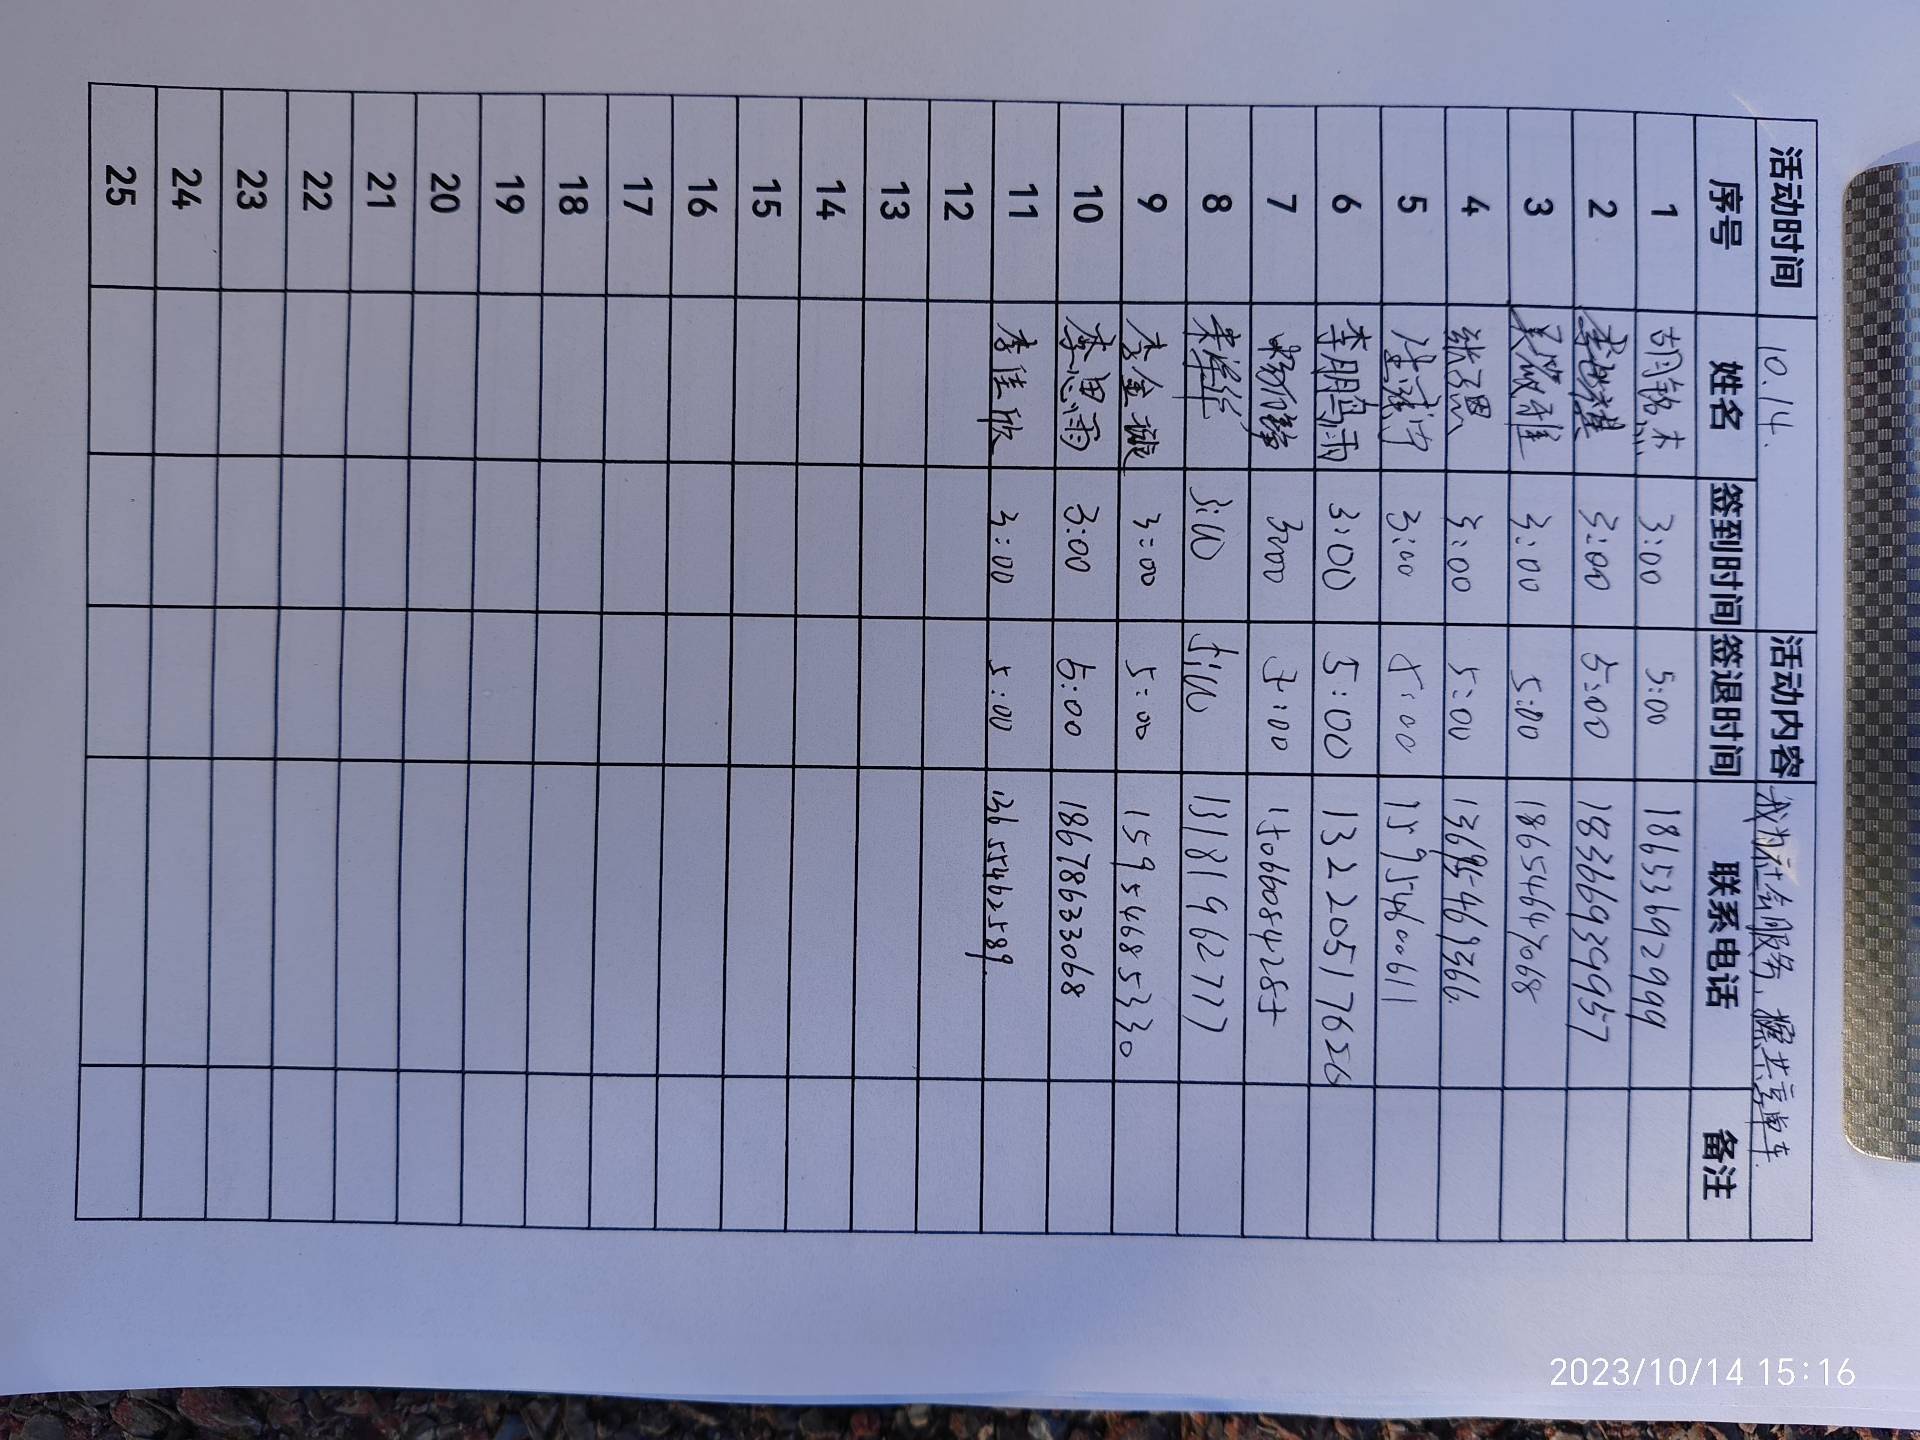 活动时间 10.14. 活动内容 我为社会服务，擦共享单车
序号 姓名 签到时间 签退时间 联系电话 备注
1 胡铭杰 3:00 5:00 18653692999
2 3:00 5:00 18366939957
3 3:00 5:00 18654647068
4 张子恩 3:00 5:00 13695469366
5 3:00 5:00 15975460611
6 李鹏雨 3:00 5:00 13220517626
7 3:00 5:00 15066084285
8 3:00 5:00 13181962777
9 李金璇 3:00 5:00 15954685330
10 李思雨 3:00 5:00 18678633068
11 李佳欣 3:00 5:00 13655462589
12
13
14
15
16
17
18
19
20
21
22
23
24
25
2023/10/14 15:16